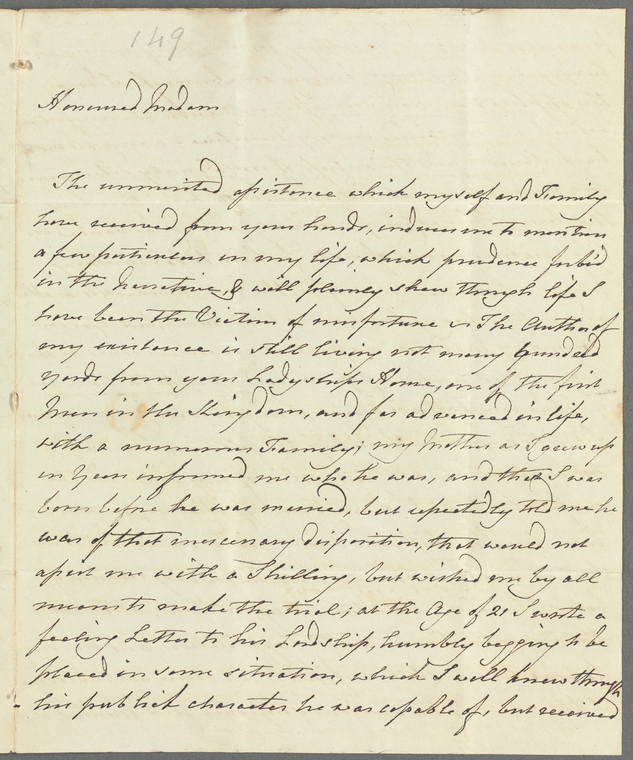 149
Honoured Madam
The unmerited assistance which myself and Family
have received from your hands, induces me to mention
a few particulars in my life, which prudence forbid
in the Narrative, & will plainly shew through life I
have been the Victim of misfortune The Author of
my existence is still living not many hundred
yards from your Ladyships Home, one of the first
Men in the Kingdom, and far advanced in life,
with a numerous Family; my Mother as I grew up
in Years informed me who he was, and that I was
born before he was married, but repeatedly told me he
was of that mercenary disposition, that would not
assist me with a Shilling, but wished me by all
means to make the trial; at the Age of 21 I wrote a
feeling Letter to his Lordship, humbly begging to be
placed in some situation, which I well knew through
his publick character he was capable of, but received